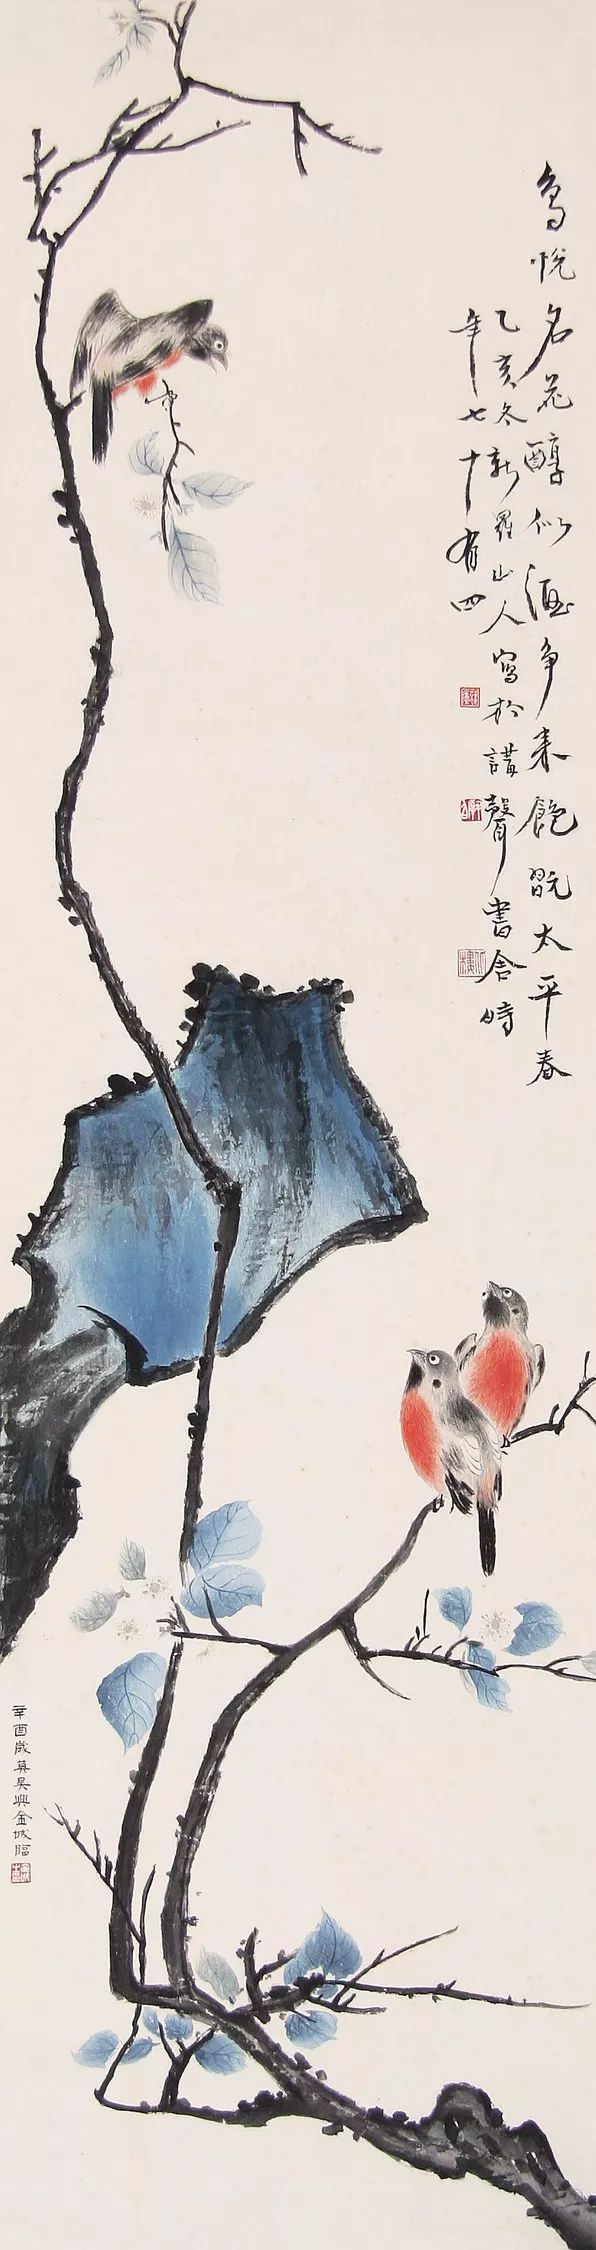 鳥悅名花醇似酒争来飽翫太平春
乙亥冬新羅山人寫於講聲書舍時
年七十有四
辛酉歲莫吴興金城臨